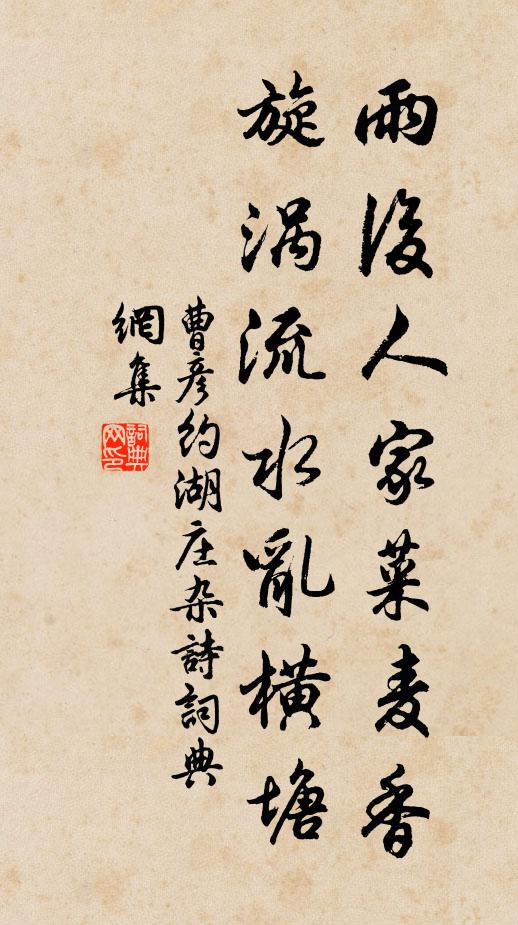 雨後人家菜麦香
旋涡流水亂橫塘
曹彦约湖庄杂詩詞典
網集
詞典
网印